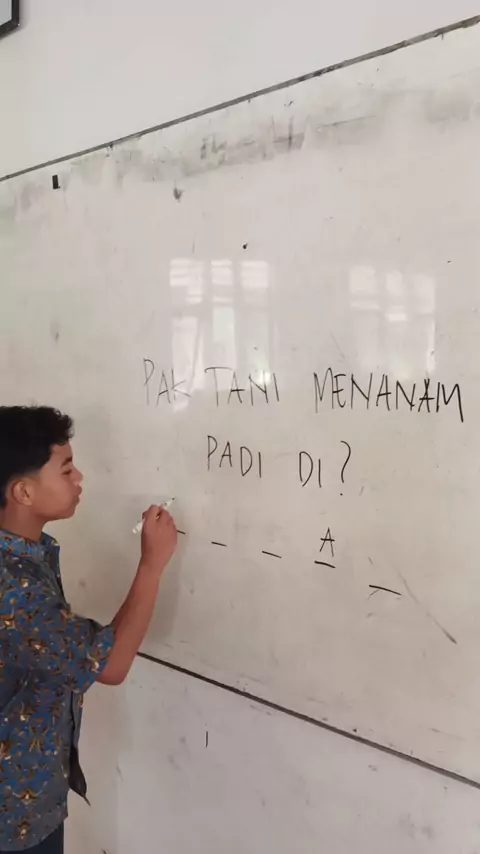 PAK TANI MENANAM
PADI DI?
_ _ _ A _